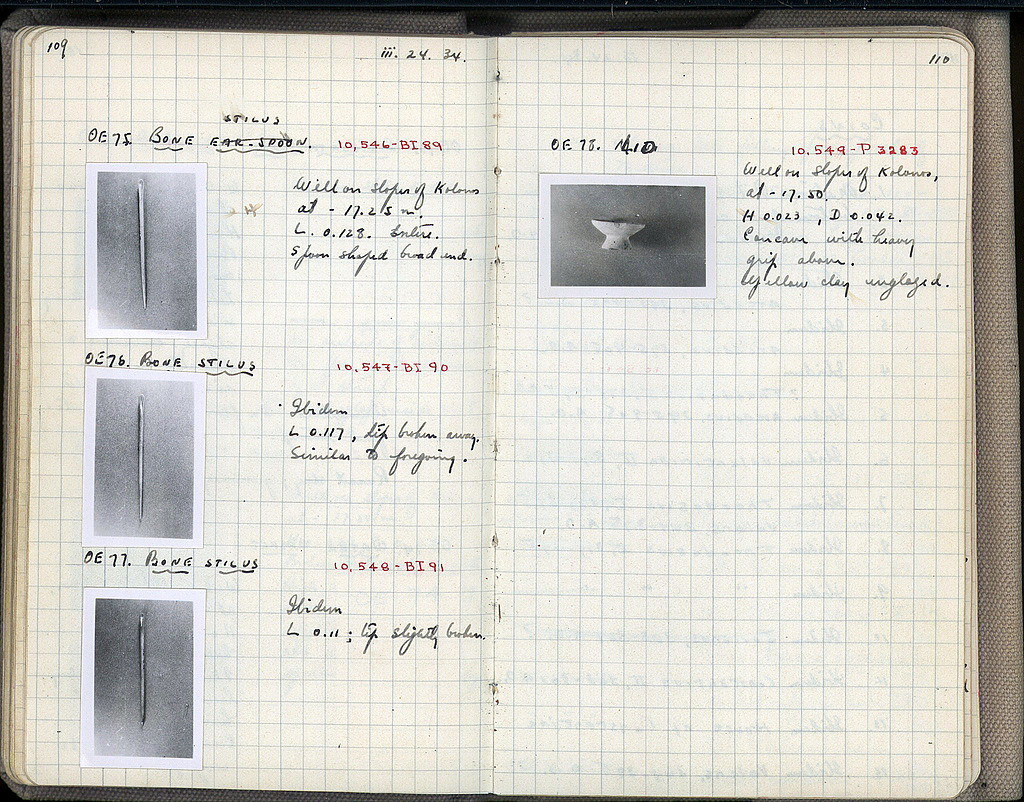 109
iii. 24. 34.
STILUS
OE 75. BONE EAR-SPOON. 10,546-BI 89
Well on slopes of Kolonos
at - 17.25 m.
L. 0.128. Entire.
Spoon shaped broad end.
OE 76. BONE STILUS 10,547-BI 90
Ibidem
L 0.117, tip broken away.
Similar to foregoing.
OE 77. BONE STILUS 10,548-BI 91
Ibidem
L 0.11; tip slightly broken.
110
OE 78. LID 10,549-P 3283
Well on slopes of Kolonos,
at - 17.50.
H 0.023, D 0.042.
Concave with heavy
grip above.
Yellow clay unglazed.